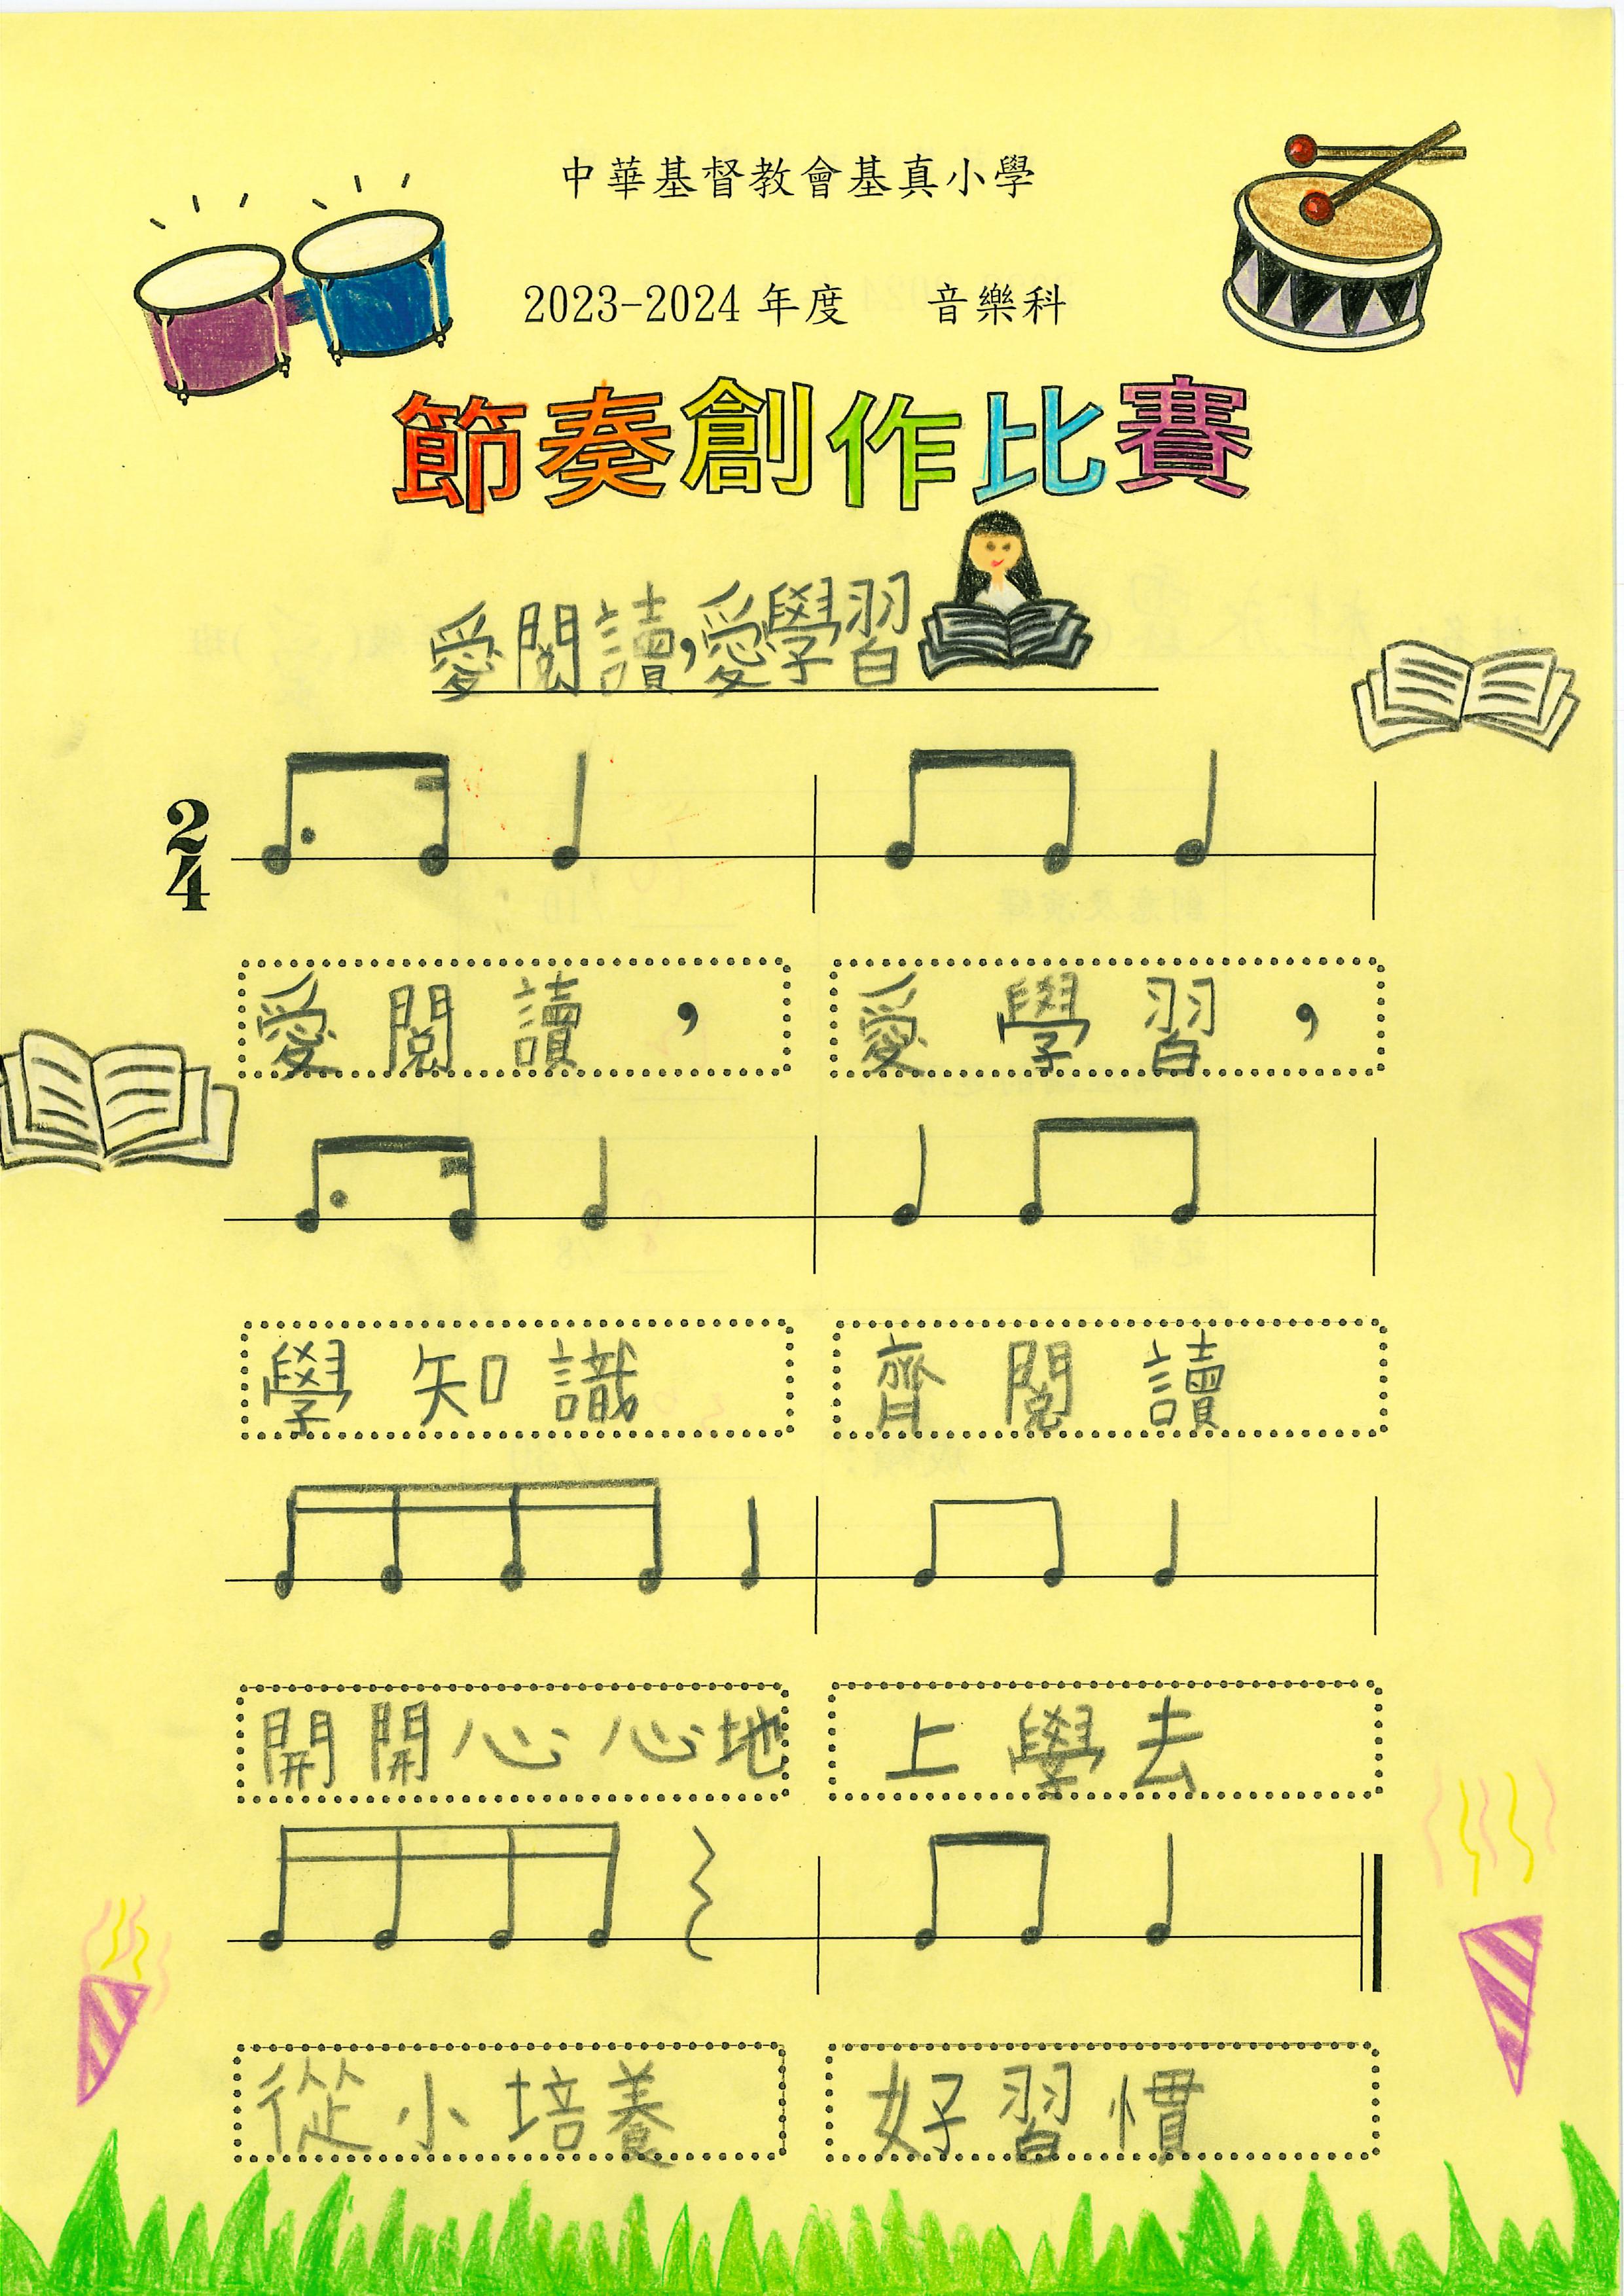 中華基督教會基真小學
2023-2024 年度 音樂科
節奏創作比賽
愛閱讀,愛學習
2
4
愛閱讀, 愛學習,
學知識 齊閱讀
開開心心地 上學去
從小培養 好習慣